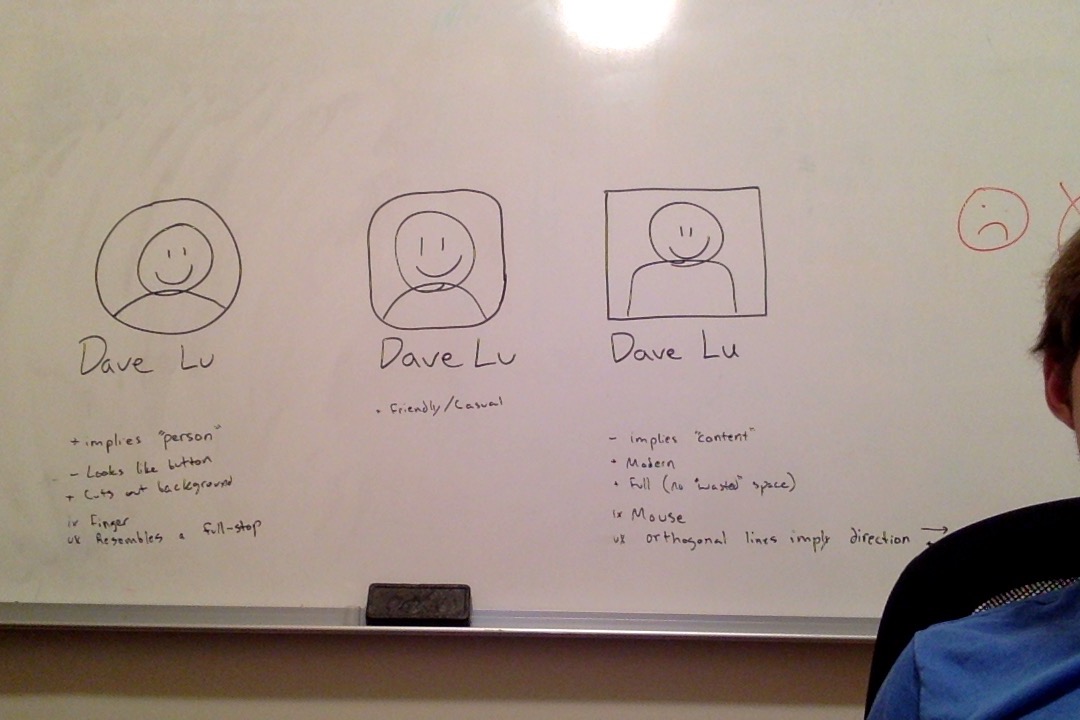 Dave Lu
+ implies "person"
- Looks like button
+ Cuts out background
ix Finger
ux Resembles a full-stop
Dave Lu
+ Friendly/Casual
Dave Lu
- implies "content"
+ Modern
+ Full (no "wasted" space)
ix Mouse
ux orthogonal lines imply direction →